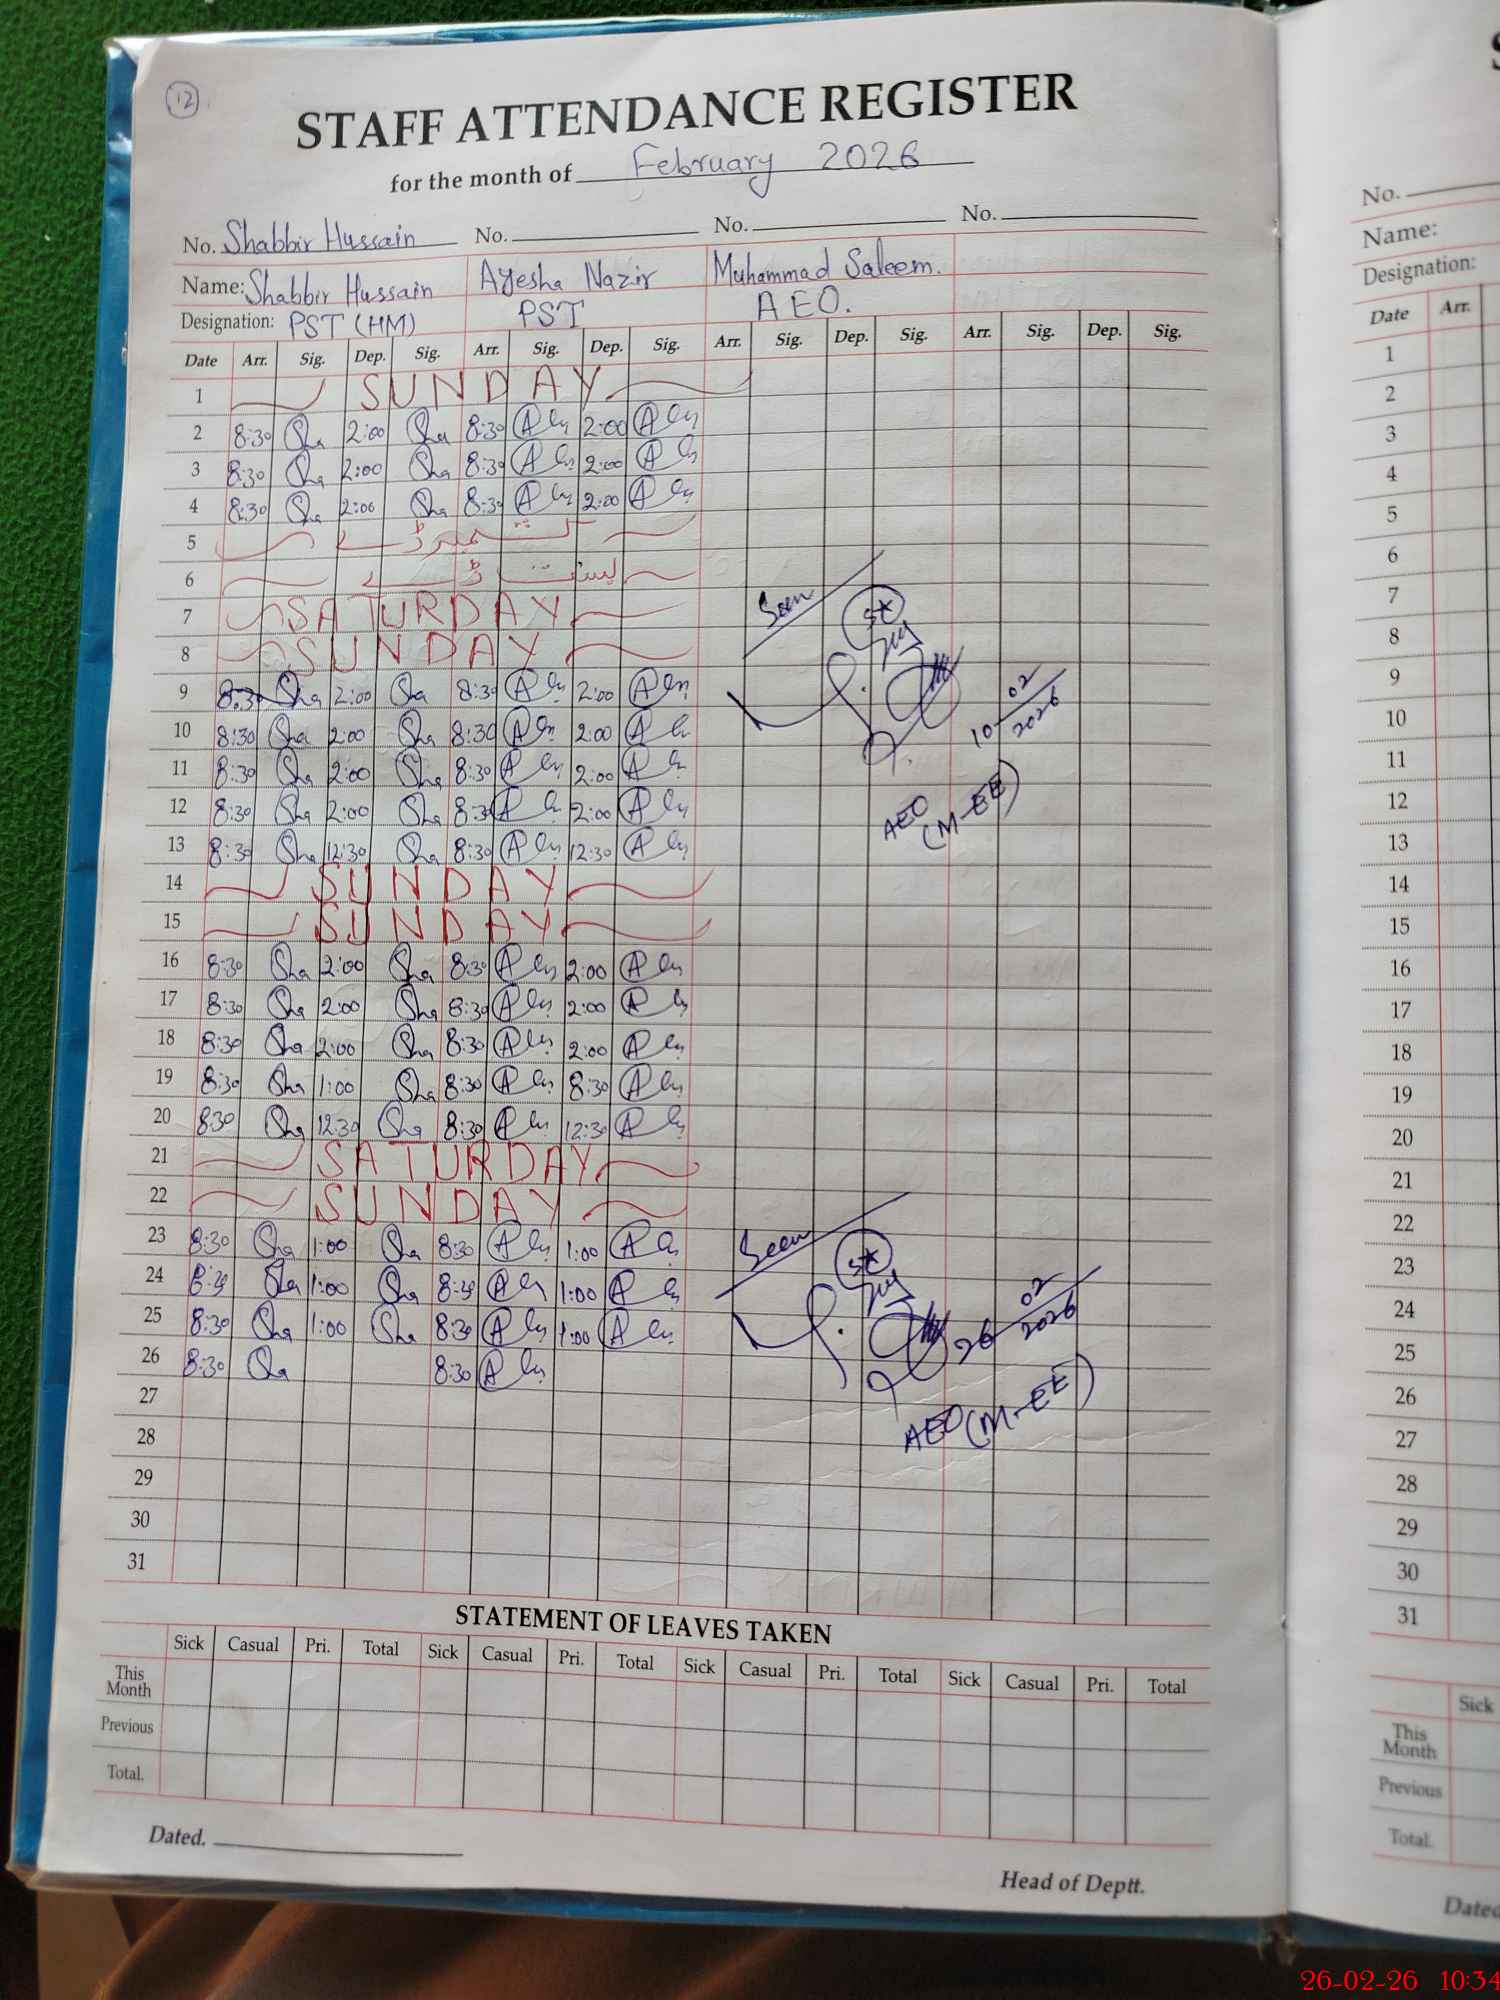 12
STAFF ATTENDANCE REGISTER
for the month of February 2026
No. Shabbir Hussain No. No. No.
Name: Shabbir Hussain Ayesha Nazir Muhammad Saleem.
Designation: PST (HM) PST AEO.
Date Arr. Sig. Dep. Sig. Arr. Sig. Dep. Sig. Arr. Sig. Dep. Sig. Arr. Sig. Dep. Sig.
1 SUNDAY
2 8:30 Sha 2:00 Sha 8:30 2:00
3 8:30 Sha 2:00 Sha 8:30 2:00
4 8:30 Sha 2:00 Sha 8:30 2:00
5 کشمیر ڈے
6 بسنت ڈے
7 SATURDAY
8 SUNDAY
9 8:30 Sha 2:00 Sha 8:30 2:00
10 8:30 Sha 2:00 Sha 8:30 2:00
11 8:30 Sha 2:00 Sha 8:30 2:00
12 8:30 Sha 2:00 Sha 8:30 2:00
13 8:30 Sha 12:30 Sha 8:30 12:30
14 SUNDAY
15 SUNDAY
16 8:30 Sha 2:00 Sha 8:30 2:00
17 8:30 Sha 2:00 Sha 8:30 2:00
18 8:30 Sha 2:00 Sha 8:30 2:00
19 8:30 Sha 1:00 Sha 8:30 8:30
20 8:30 Sha 12:30 Sha 8:30 12:30
21 SATURDAY
22 SUNDAY
23 8:30 Sha 1:00 Sha 8:30 1:00
24 8:30 Sha 1:00 Sha 8:30 1:00
25 8:30 Sha 1:00 Sha 8:30 1:00
26 8:30 Sha 8:30
27
28
29
30
31
Seen
10 02 2026
AEO (M-EE)
Seen
26 02 2026
AEO (M-EE)
STATEMENT OF LEAVES TAKEN
Sick Casual Pri. Total Sick Casual Pri. Total Sick Casual Pri. Total Sick Casual Pri. Total
This Month
Previous
Total.
Dated.
Head of Deptt.
No.
Name:
Designation:
Date Arr.
1
2
3
4
5
6
7
8
9
10
11
12
13
14
15
16
17
18
19
20
21
22
23
24
25
26
27
28
29
30
31
Sick
This Month
Previous
Total.
Dated
26-02-26 10:34